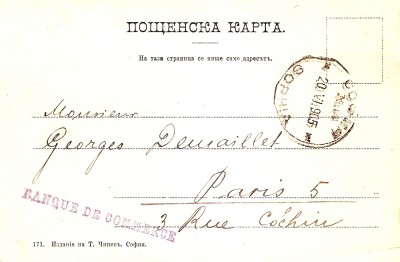 ПОЩЕНСКА КАРТА.
На тази страница се пише само адресътъ.
SOPHIA
20.VI.905
Monsieur
Georges Demaillet
Paris 5
3 Rue Cochin
BANQUE DE COMMERCE
171. Издание на Т. Чипевъ. София.